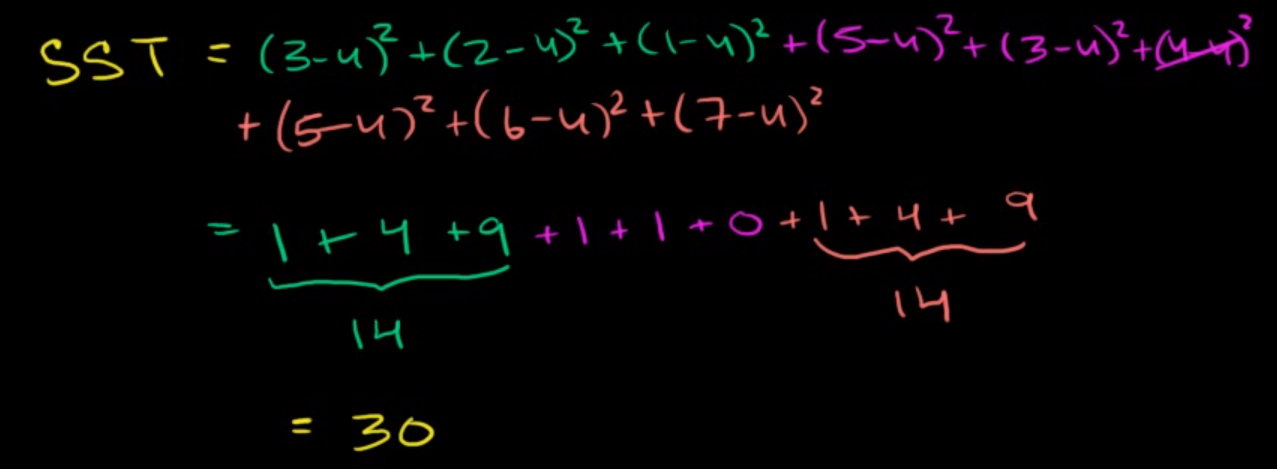 SST = (3-4)² + (2-4)² + (1-4)² + (5-4)² + (3-4)² + (4-4)²
+ (5-4)² + (6-4)² + (7-4)²
= 1 + 4 + 9 + 1 + 1 + 0 + 1 + 4 + 9
14 14
= 30